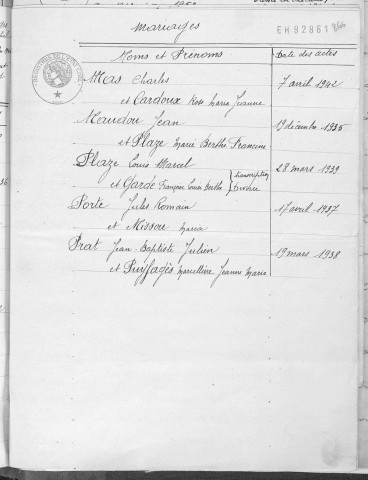 Mariages
EH92861
Noms et Prénoms Date des actes
Mas Charles 7 avril 1942
et Cardoux Rose Marie Jeanne
Maudou Jean 19 décembre 1935
et Plaze Marie Berthe Francine
Plaze Louis Marcel 28 mars 1939
et Garde Françoise Louise Berthe (transcription Divorce
Porte Jules Romain 17 avril 1937
et Missou Maria
Prat Jean-Baptiste Julien 19 mars 1938
et Puyfagès Marcelline Jeanne Marie